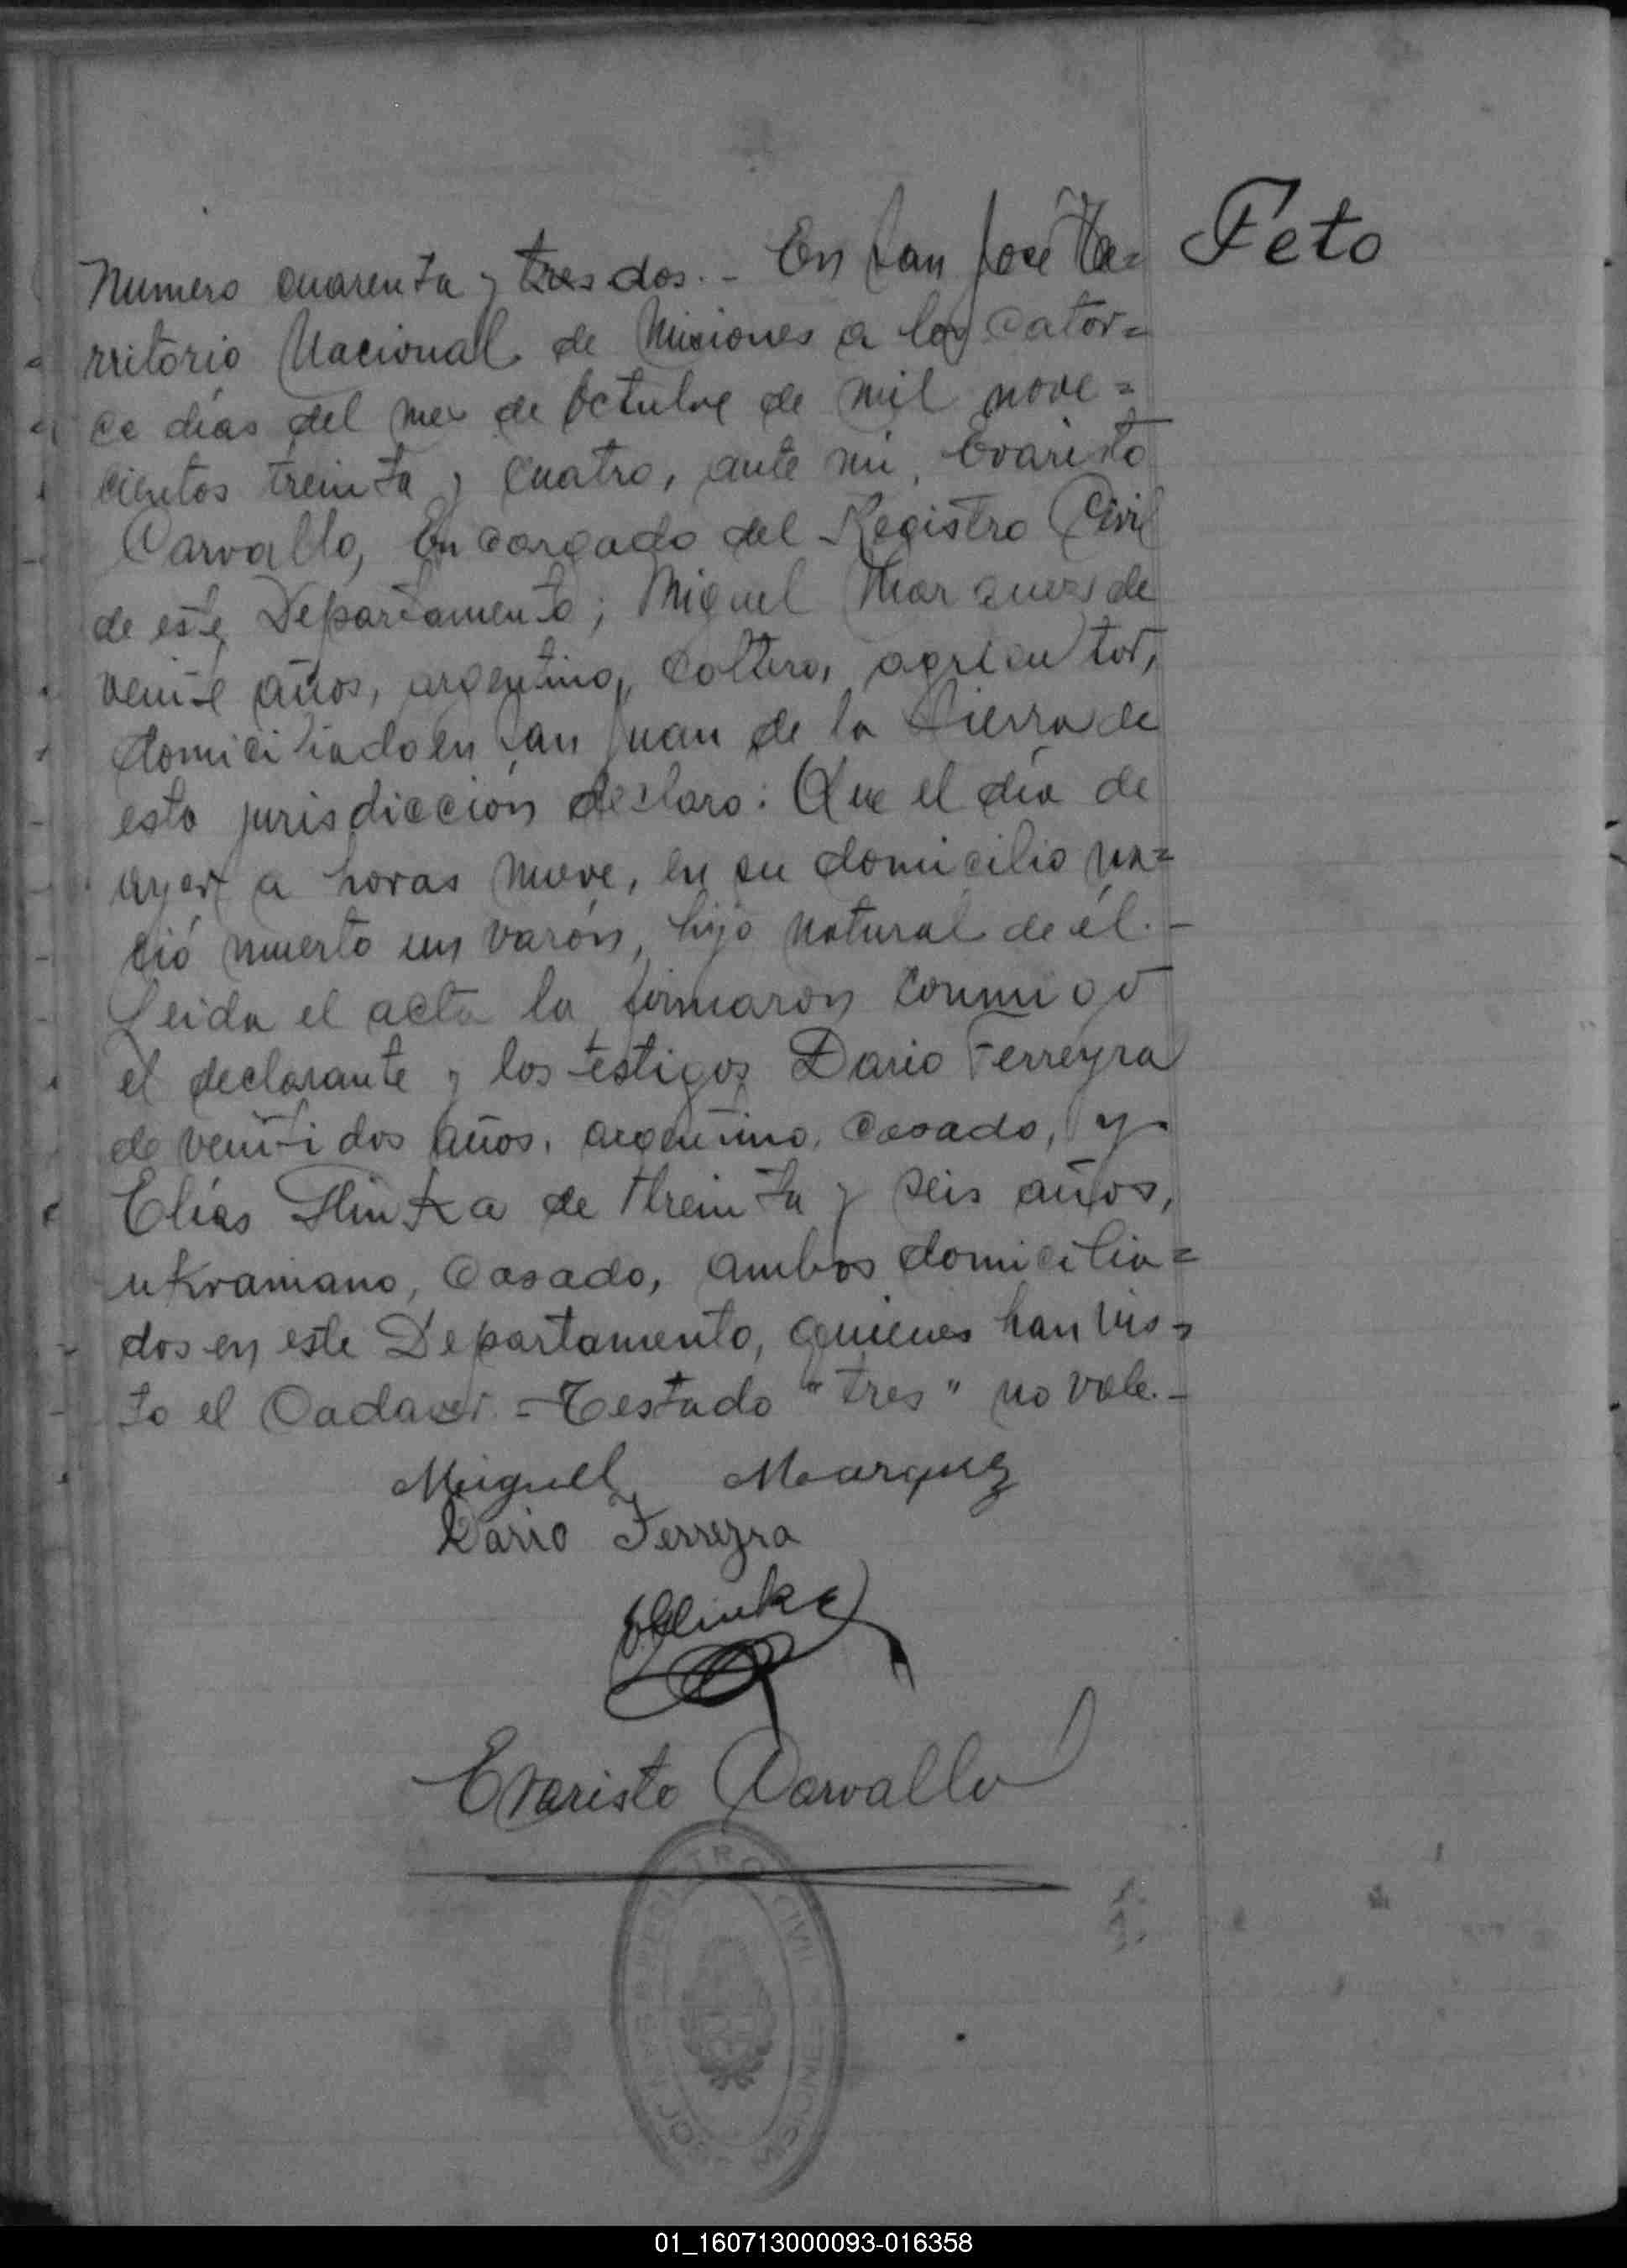 Feto
Numero cuarenta y tres dos.- En San José Te=
rritorio Nacional de Misiones a los cator=
ce días del mes de Octubre de mil nove=
cientos treinta y cuatro, ante mi, Evaristo
Carvallo, Encargado del Registro Civil
de este Departamento; Miguel Marquez de
veinte años, argentino, soltero, agricultor,
domiciliado en San Juan de la Sierra de
esta jurisdicción declaro: Que el día de
ayer a horas nueve, en su domicilio na=
ció muerto un varón, hijo natural de él.-
Leida el acta la firmaron conmigo
el declarante y los testigos Dario Ferreyra
de veintidos años, argentino, casado, y
Elías de treinta y seis años,
ukraniano, Casado, ambos domicilia=
dos en este Departamento, quienes han vis=
to el Cadaver.-Testado "tres" no vale.-
Miguel Marquez
Dario Ferreyra
Evaristo Carvallo
REGISTRO CIVIL
SAN JOSE
MISIONES
01_160713000093-016358